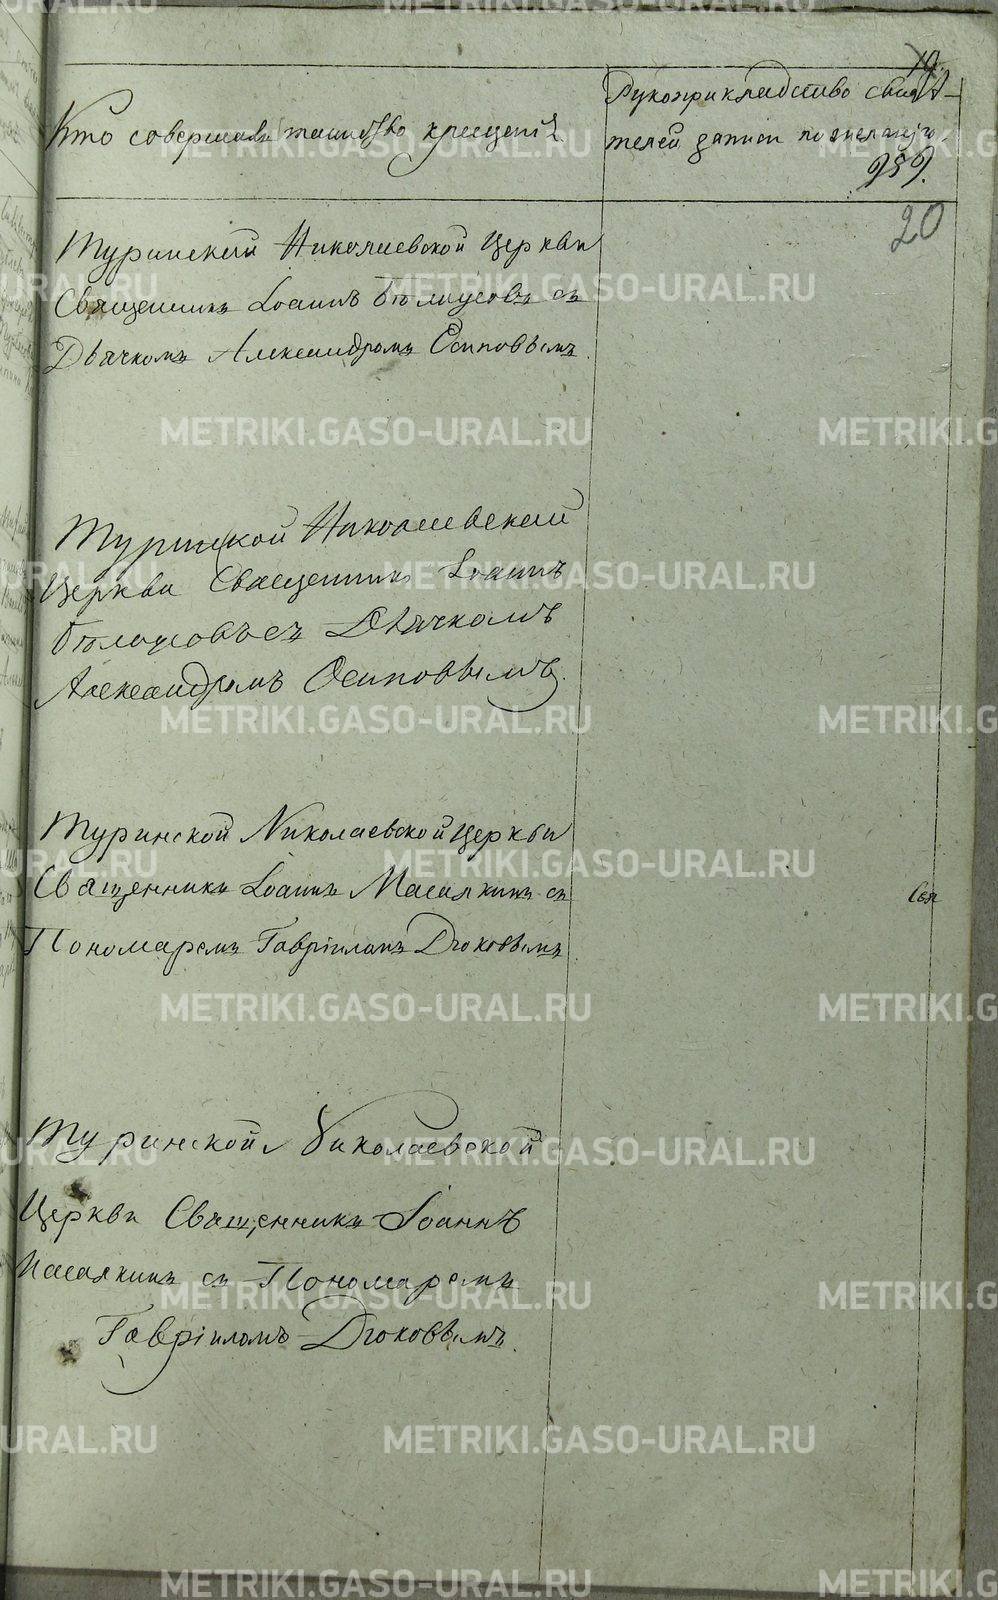 19.
Кто совершалъ таинство крещенія
Рукоприкладство свидѣ-
телей записи по желанію.
959.
20
Туринской Николаевской Церкви
Священникъ Іоаннъ Бѣлоусовъ съ
Дьячкомъ Александромъ Осиповымъ
Туринской Николаевской
Церкви Священникъ Іоаннъ
Бѣлоусовъ съ Дьячкомъ
Александромъ Осиповымъ.
Туринской Николаевской Церкви
Священникъ Іоаннъ Масалкинъ съ
Пономаремъ Гавріиломъ Дюковымъ
Туринской Николаевской
Церкви Священникъ Іоаннъ
Масалкинъ съ Пономаремъ
Гавріиломъ Дюковымъ.
METRIKI.GASO-URAL.RU